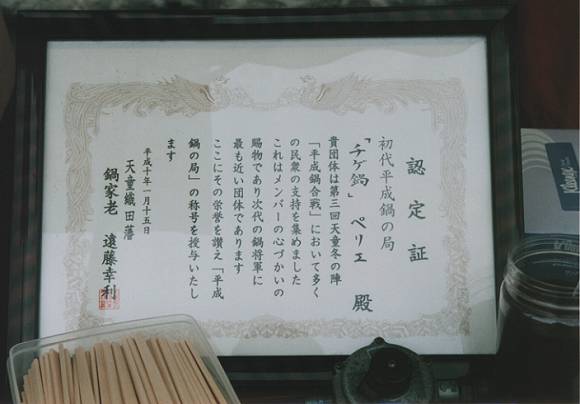 認定証
初代平成鍋の局
「チゲ鍋」 ペリエ 殿
貴団体は第三回天童冬の陣
「平成鍋合戦」において多く
の民衆の支持を集めました
これはメンバーの心づかいの
賜物であり次代の鍋将軍に
最も近い団体であります
ここにその栄誉を讃え「平成
鍋の局」の称号を授与いたし
ます
平成十年一月十五日
天童織田藩
鍋家老 遠藤幸利